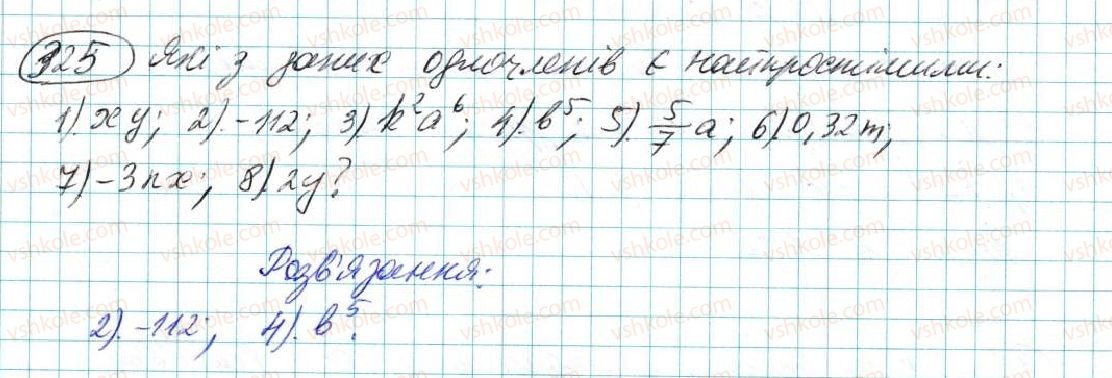 325 Які з даних одночленів є найпростішими:
1). xy; 2). -112; 3) k²a⁶; 4). b⁵; 5). 5/7 a; 6). 0,32m;
7) -3nx; 8). 2y?
Розв'язання:
2). -112; 4). b⁵.